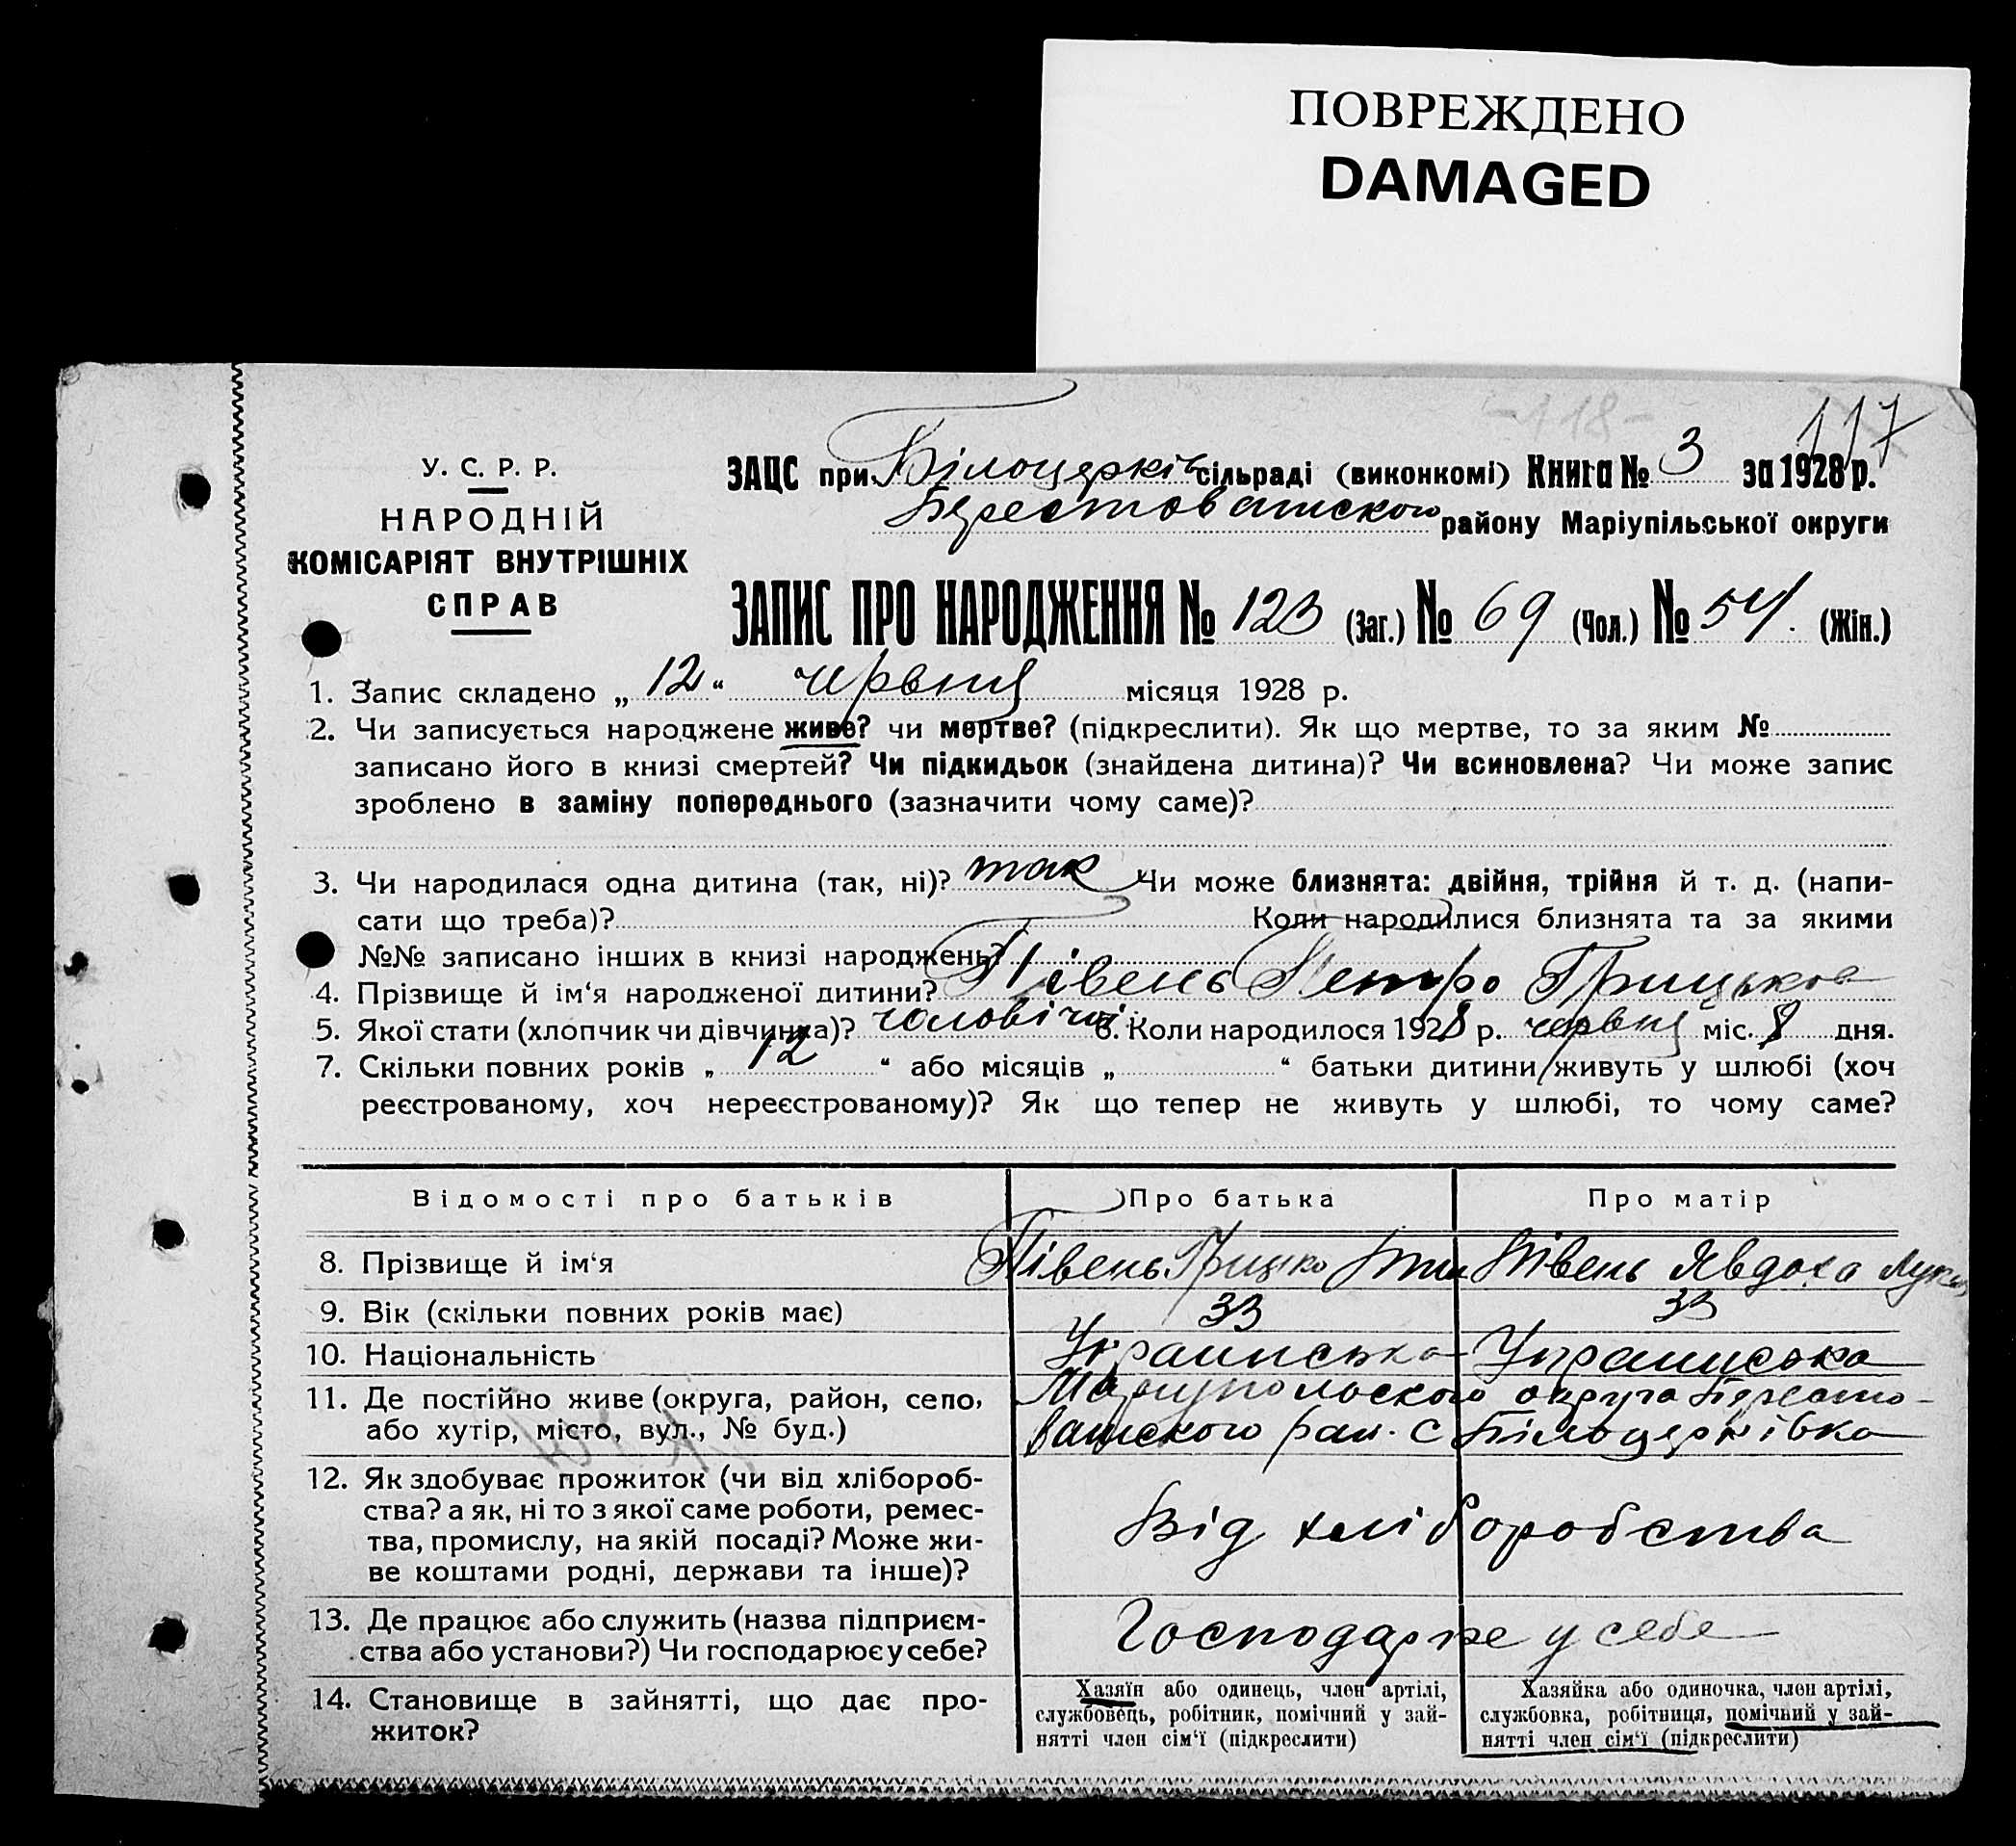 ПОВРЕЖДЕНО
DAMAGED
-118-
117
У. С. Р. Р.
НАРОДНІЙ
КОМІСАРІЯТ ВНУТРІШНІХ
СПРАВ
ЗАЦС при Білоцерків сільраді (виконкомі) Книга № 3 за 1928 р.
Берестоватского району Маріупільської округи
ЗАПИС ПРО НАРОДЖЕННЯ № 123 (Заг.) № 69 (Чол.) № 54. (Жін.)
1. Запис складено „ 12 “ червня місяця 1928 р.
2. Чи записується народжене живе? чи мертве? (підкреслити). Як що мертве, то за яким №
записано його в книзі смертей? Чи підкидьок (знайдена дитина)? Чи всиновлена? Чи може запис
зроблено в заміну попереднього (зазначити чому саме)?
3. Чи народилася одна дитина (так, ні)? так Чи може близнята: двійня, трійня й т. д. (напи-
сати що треба)? Коли народилися близнята та за якими
№№ записано інших в книзі народжень?
4. Прізвище й ім‘я народженої дитини? Півень Петро Грицьков
5. Якої стати (хлопчик чи дівчинка)? чоловічої 6. Коли народилося 1928 р. червня міс. 8 дня.
7. Скільки повних років „ 12 “ або місяців „ “ батьки дитини живуть у шлюбі (хоч
реєстрованому, хоч нереєстрованому)? Як що тепер не живуть у шлюбі, то чому саме?
Відомості про батьків Про батька Про матір
8. Прізвище й ім‘я Півень Грицко Півень Явдоха
9. Вік (скільки повних років має) 33 33
10. Національність Украинська Украинська
11. Де постійно живе (округа, район, село, Мариупольского округа Бересто-
або хутір, місто, вул., № буд.) ватского рай. с Білоцерківка
12. Як здобуває прожиток (чи від хлібороб-
ства? а як, ні то з якої саме роботи, ремес-
тва, промислу, на якій посаді? Може жи-
ве коштами родні, держави та інше)?
Від хліборобства
13. Де працює або служить (назва підприєм-
ства або установи?) Чи господарює у себе?
Господарке у себе
14. Становище в зайнятті, що дає про-
житок?
Хазяїн або одинець, член артілі,
службовець, робітник, помічний у зай-
нятті член сім‘ї (підкреслити)
Хазяйка або одиночка, член артілі,
службовка, робітниця, помічний у зай-
нятті член сім‘ї (підкреслити)